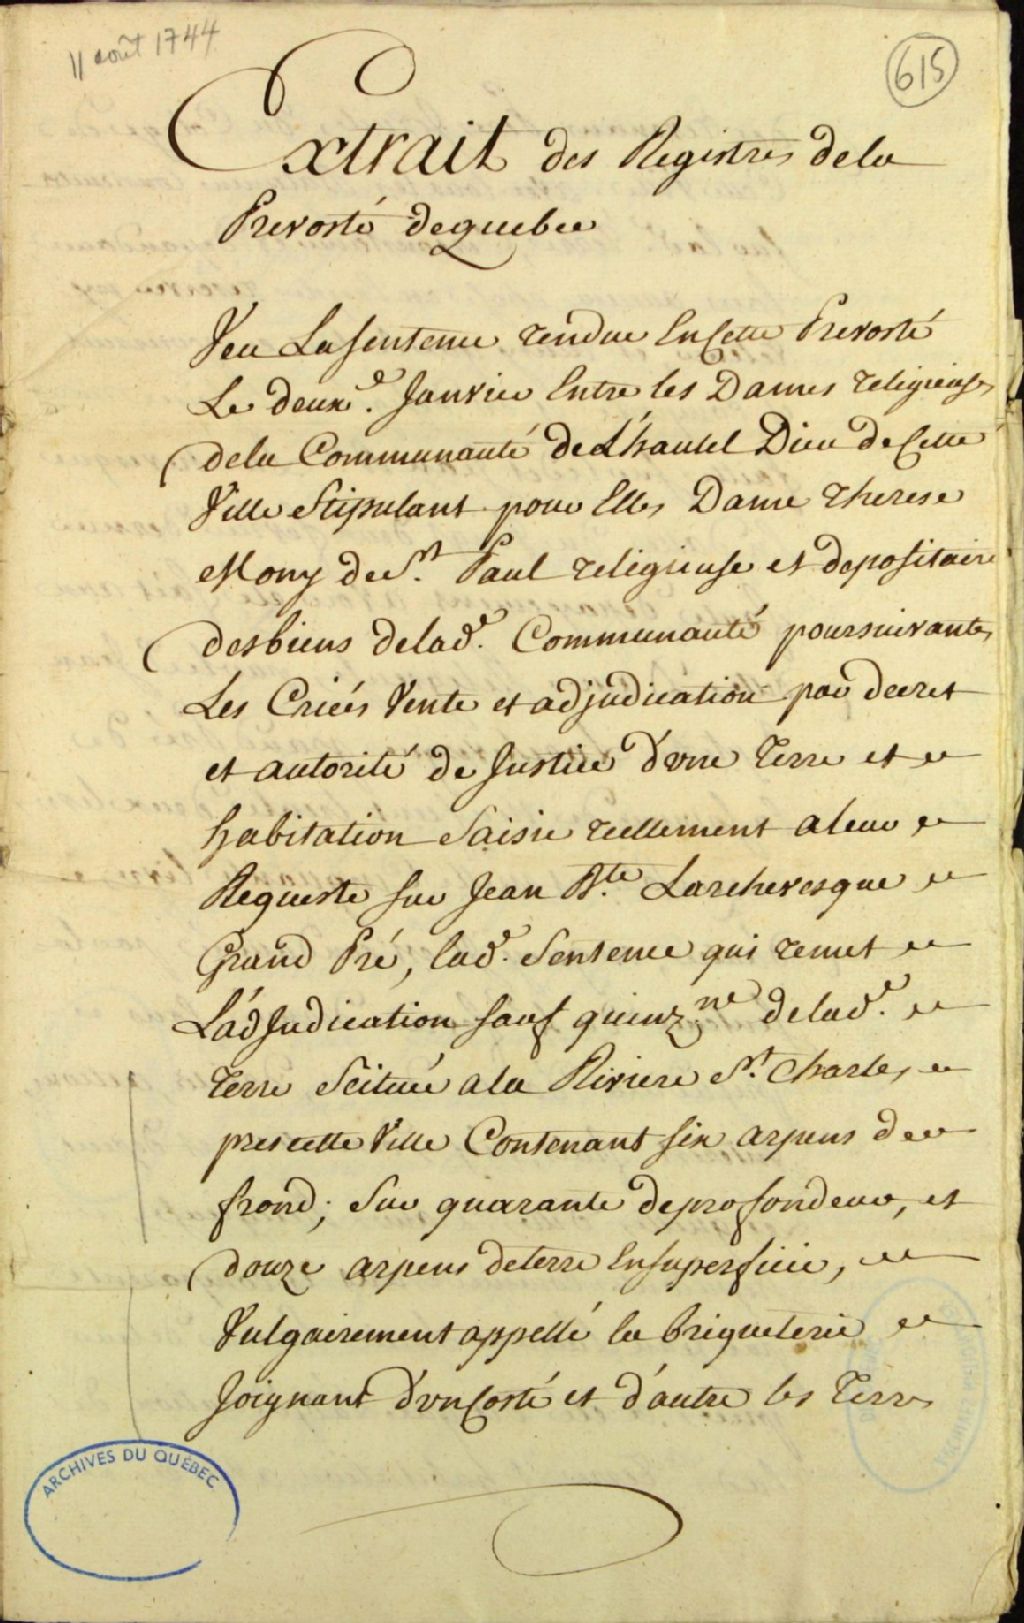 11 août 1744
615
Extrait des Registres dela
Prevosté dequebec
Veu Lasentence rendue EnCette Prevosté
Le deuxe. Janvier Entre les Dames religieuses
dela Communauté deL'hautel Dieu deCette
Ville Stipulant pour Elles Dame Therese
Mony de St. Paul religieuse et depositaire
desbiens delade. Communauté poursuivantes
Les Criées Vente et adjudication par decret
et autorité de Justice d'vne Terre et
habitation Saisie reellement aleur
Requeste sur Jean Bte. Larchevesque
Grand Pré, lade. Sentence qui remet
L'adJudication sauf quinzne delade.
Terre Scituée ala Riviere St. Charles
prescette Ville Contenant six arpens de
frond; Sur quarante deprofondeur, et
douze arpens deterre Ensuperficie,
Vulgairement appellé la briqueterie
Joignant d'vnCosté et d'autre les Terres
ARCHIVES DU QUÉBEC